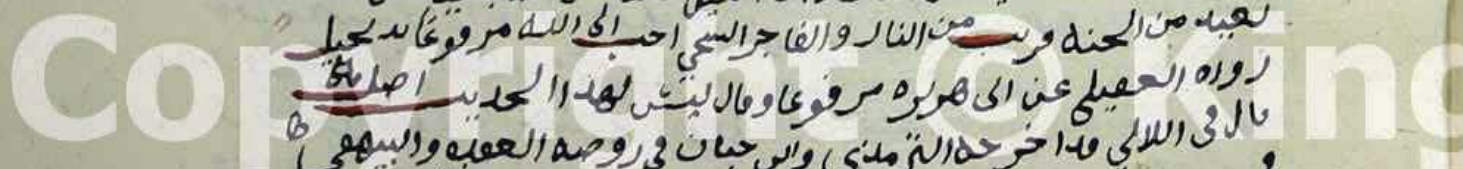 بعيد من الجنة قريب من النار والفاجر السخي احب الى الله مرفوعا بد لجيل
رواه العقيلي عن ابى هريره مرفوعا وقال ليس لهذا الحديث اصل
قال في اللالي قد اخرجه الترمذي وابن حبان في روضه العقلا والبيهقي
Copyright © King